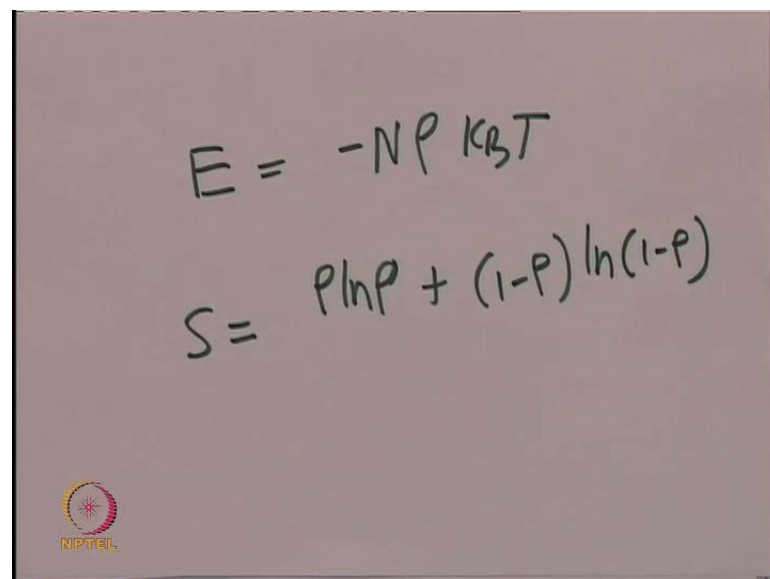 E = -Nρ KBT
S = ρlnρ + (1-ρ) ln(1-ρ)
NPTEL